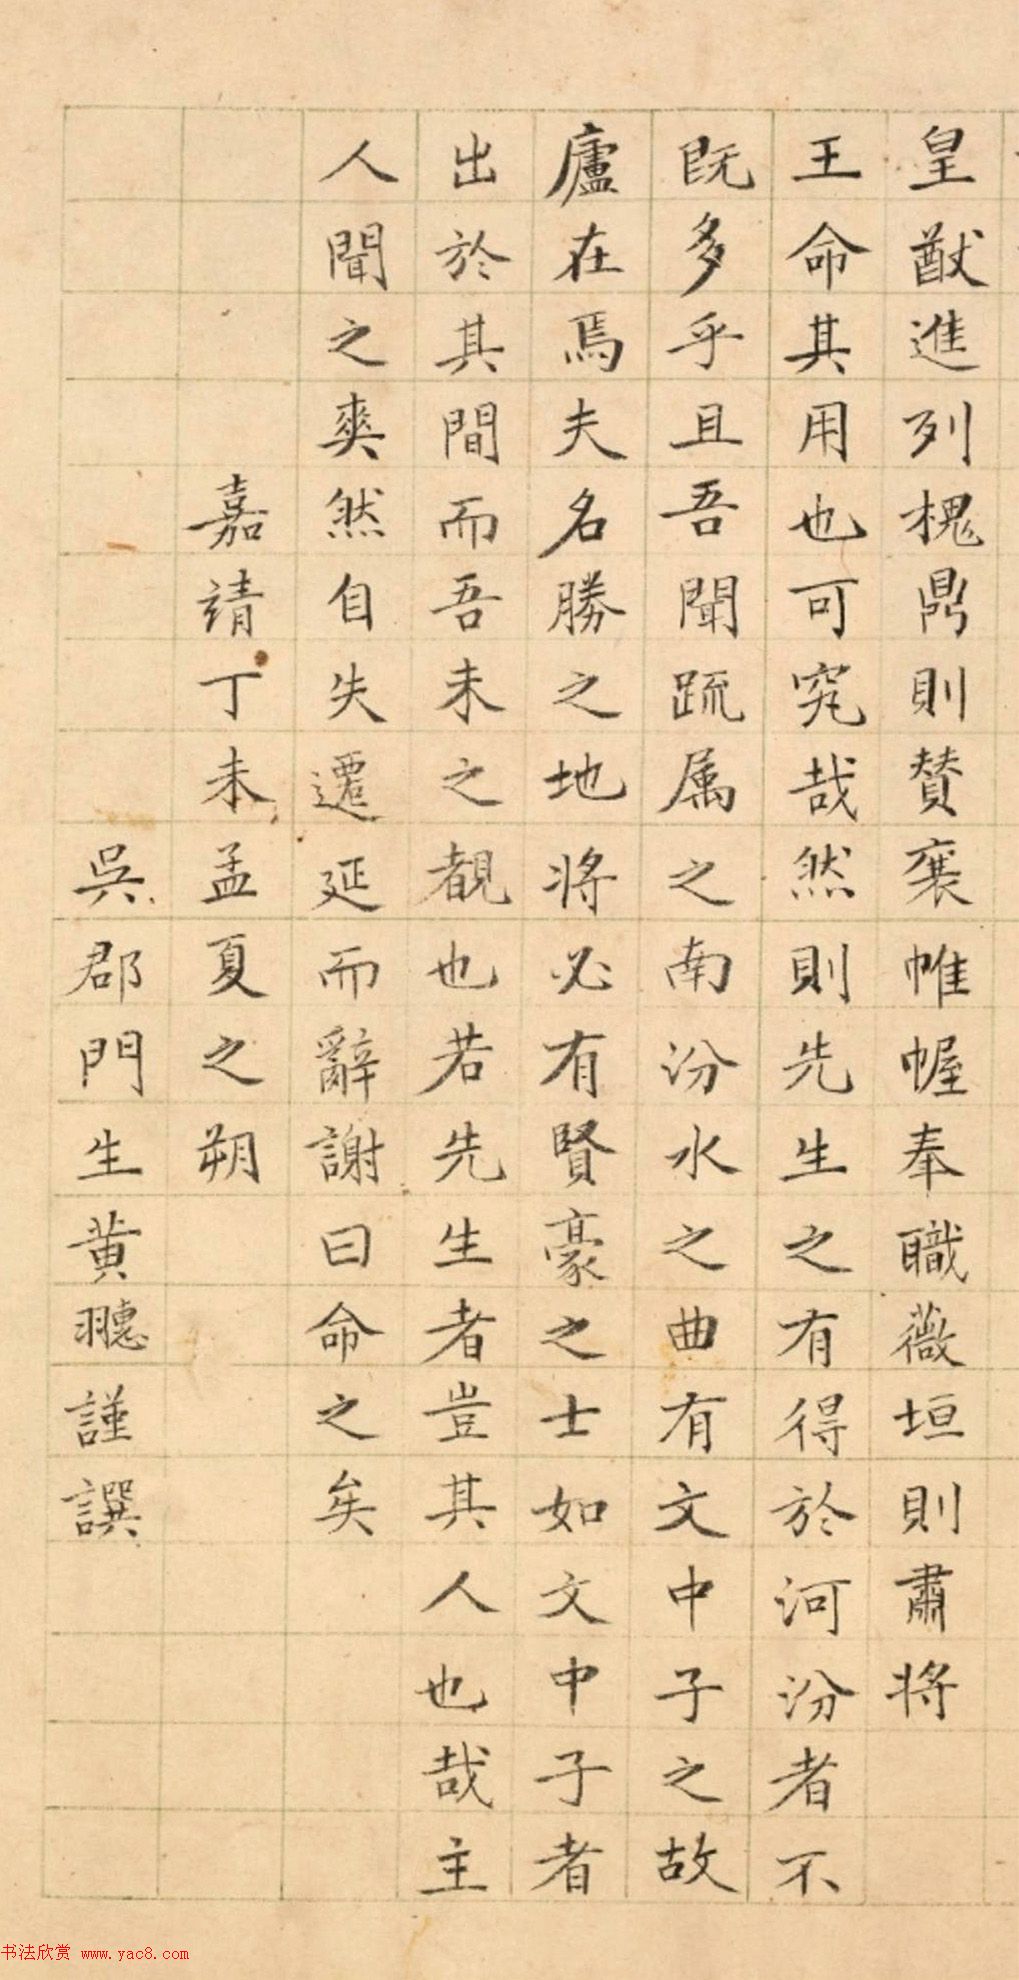 皇猷進列槐鼎則賛襄帷幄奉職薇垣則肅將
王命其用也可究哉然則先生之有得於河汾者不
既多乎且吾聞䟽属之南汾水之曲有文中子之故
廬在焉夫名勝之地將必有賢豪之士如文中子者
出於其間而吾未之覩也若先生者豈其人也哉主
人聞之爽然自失遷延而辭謝曰命之矣
嘉靖丁未孟夏之朔
吳郡門生黄謹譔
书法欣赏 www.yac8.com